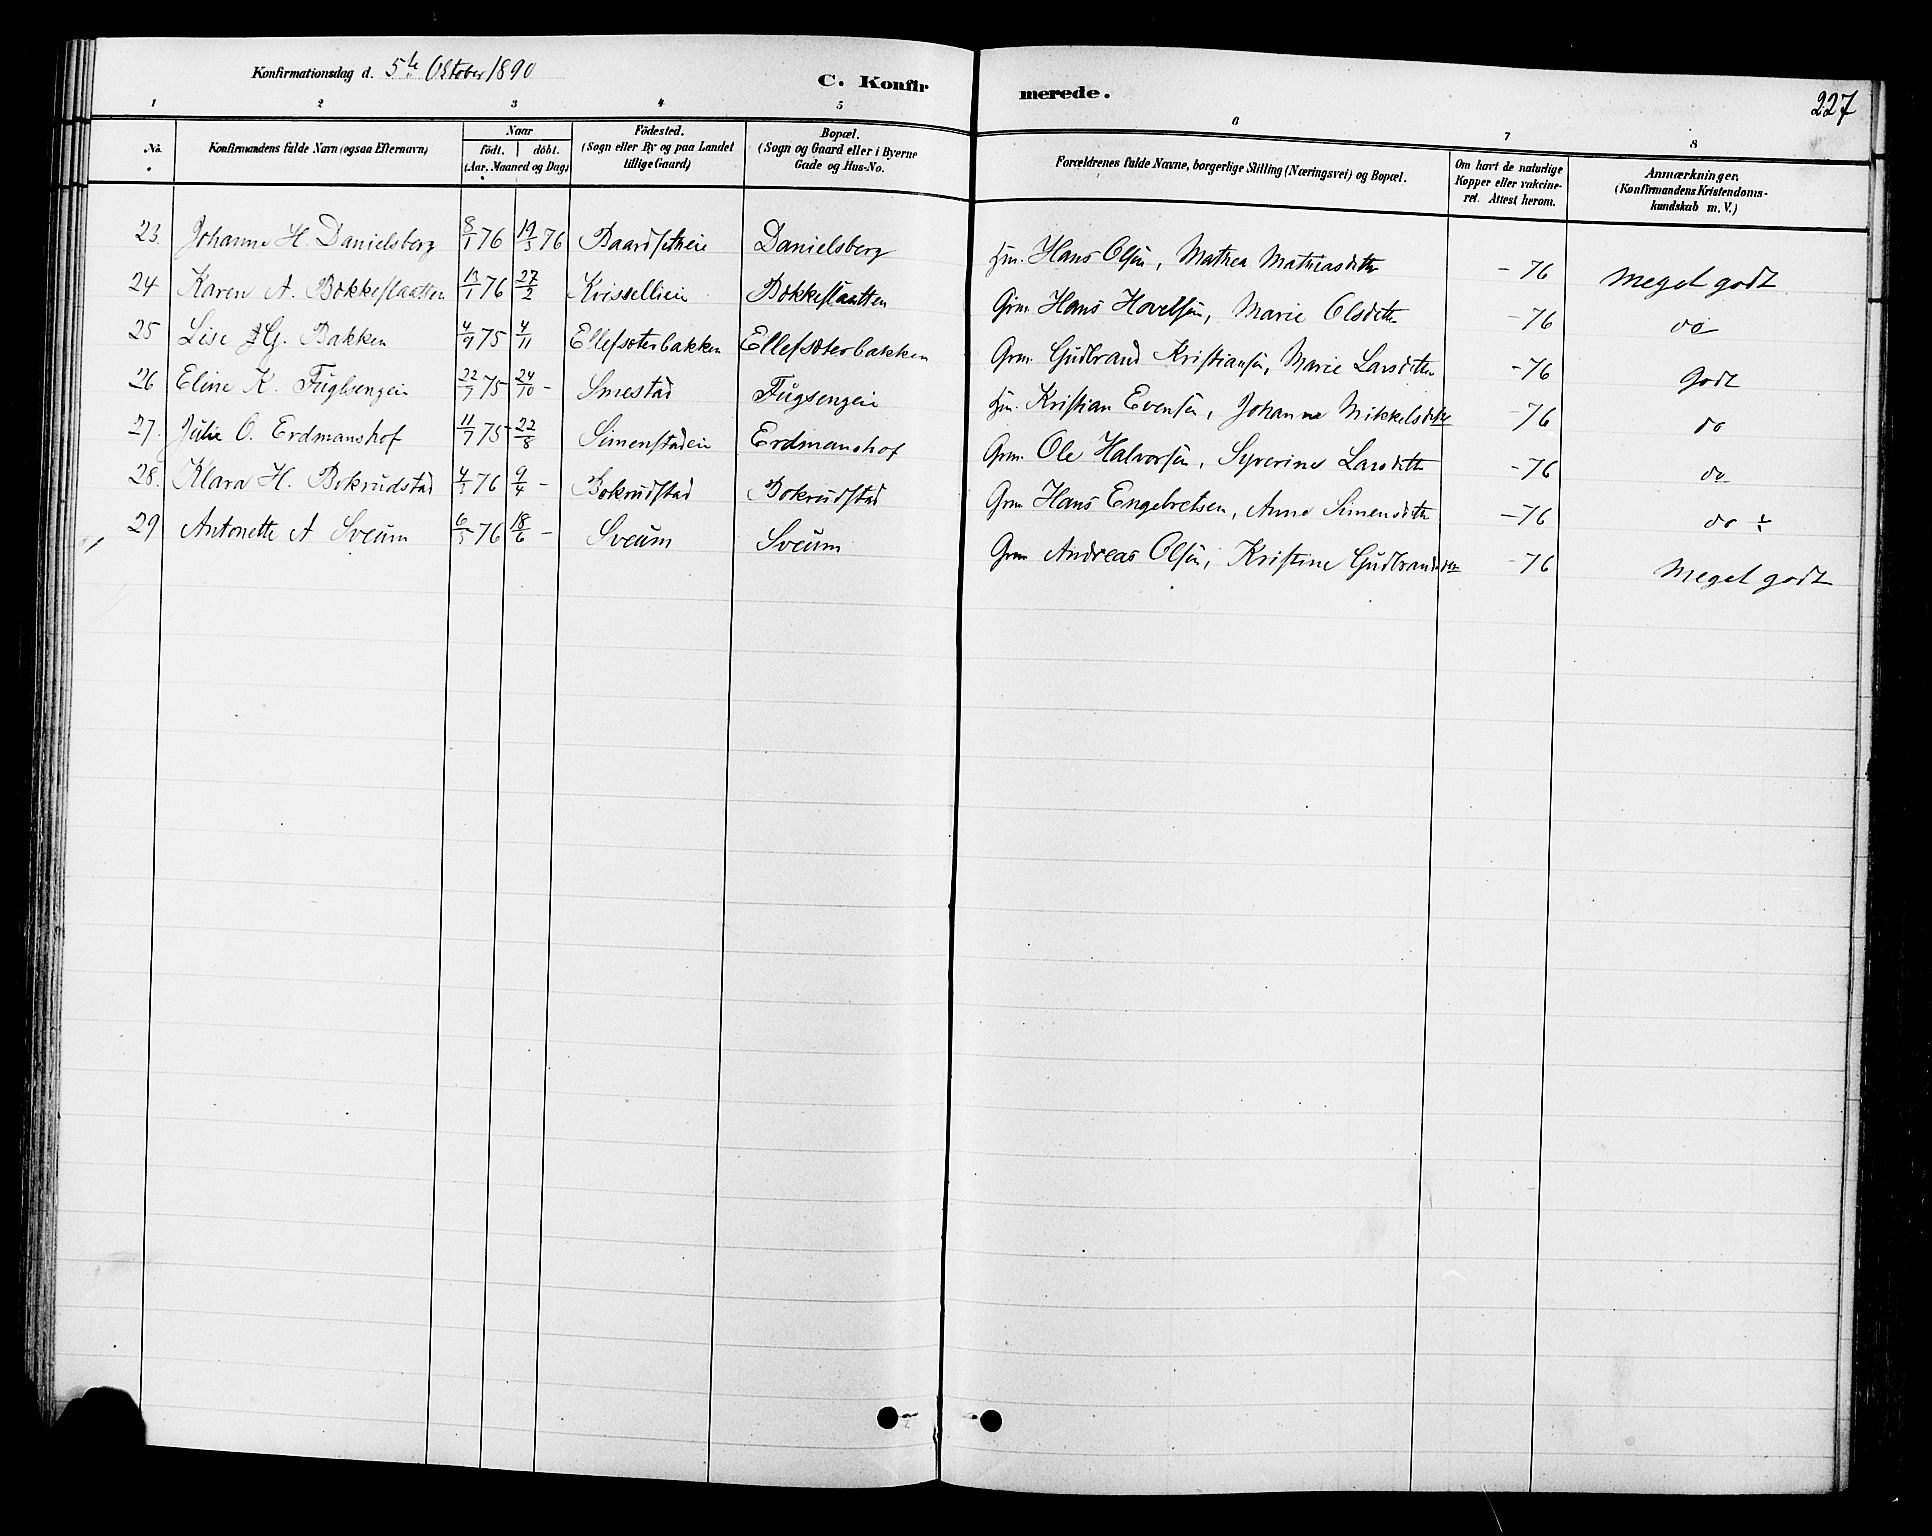 Konfirmationsdag d. 5te Oktober 1890
C. Konfirmerede.
227
1 2 3 4 5 6 7 8
No.
Konfirmandens fulde Navn (ogsaa Efternavn)
Naar
födt. döbt.
(Aar, Maaned og Dag)
Födested.
(Sogn eller By og paa Landet
tillige Gaard)
Bopæl.
(Sogn og Gaard eller i Byerne
Gade og Hus-No.
Forældrenes fulde Navne, borgerlige Stilling (Næringsvei) og Bopæl.
Om havt de naturlige
Kopper eller vakcine-
ret. Attest herom.
Anmærkninger.
(Konfirmandens Kristendoms-
kundskab m. V.)
23. Johanne H. Danielsberg 8/1 76 19/3 76 Baardsetheie Danielsberg Hm. Hans Olsen, Mathea Mathiasdtter - 76 Meget godt
24 Karen A. Bokkeslaatten 76 27/2 Kvissellieie Bokkeslaatten Grm. Hans Hovelsen, Marie Olsdtter - 76 do
25 Lise G. Bakken 4/9 75 4/11 Ellefsæterbakken Ellefsæterbakken Grm. Gudbrand Kristiansen, Marie Larsdtter - 76 Godt
26 Eline K. Fuglsengeie 22/7 75 24/10 - Smestad Fugsengeie Hm. Kristian Evensen, Johanne Mikkelsdtter - 76 do
27. Julie O. Erdmanshof 11/7 75 - 22/8 Simenstadeie Erdmanshof Grm. Ole Halvorsen, Syverine Larsdtter - 76 do
28. Klara H. Bokrudstad 76 9/4 - Bokrudstad Bokrudstad Grm Hans Engebretsen, Anne Simensdtter - 76 do ÷
29 Antonette A Sveum 6/5 76 18/6 - Sveum Sveum Grm Andreas Olsen, Kristine Gudbrandsdtter - 76 Meget godt